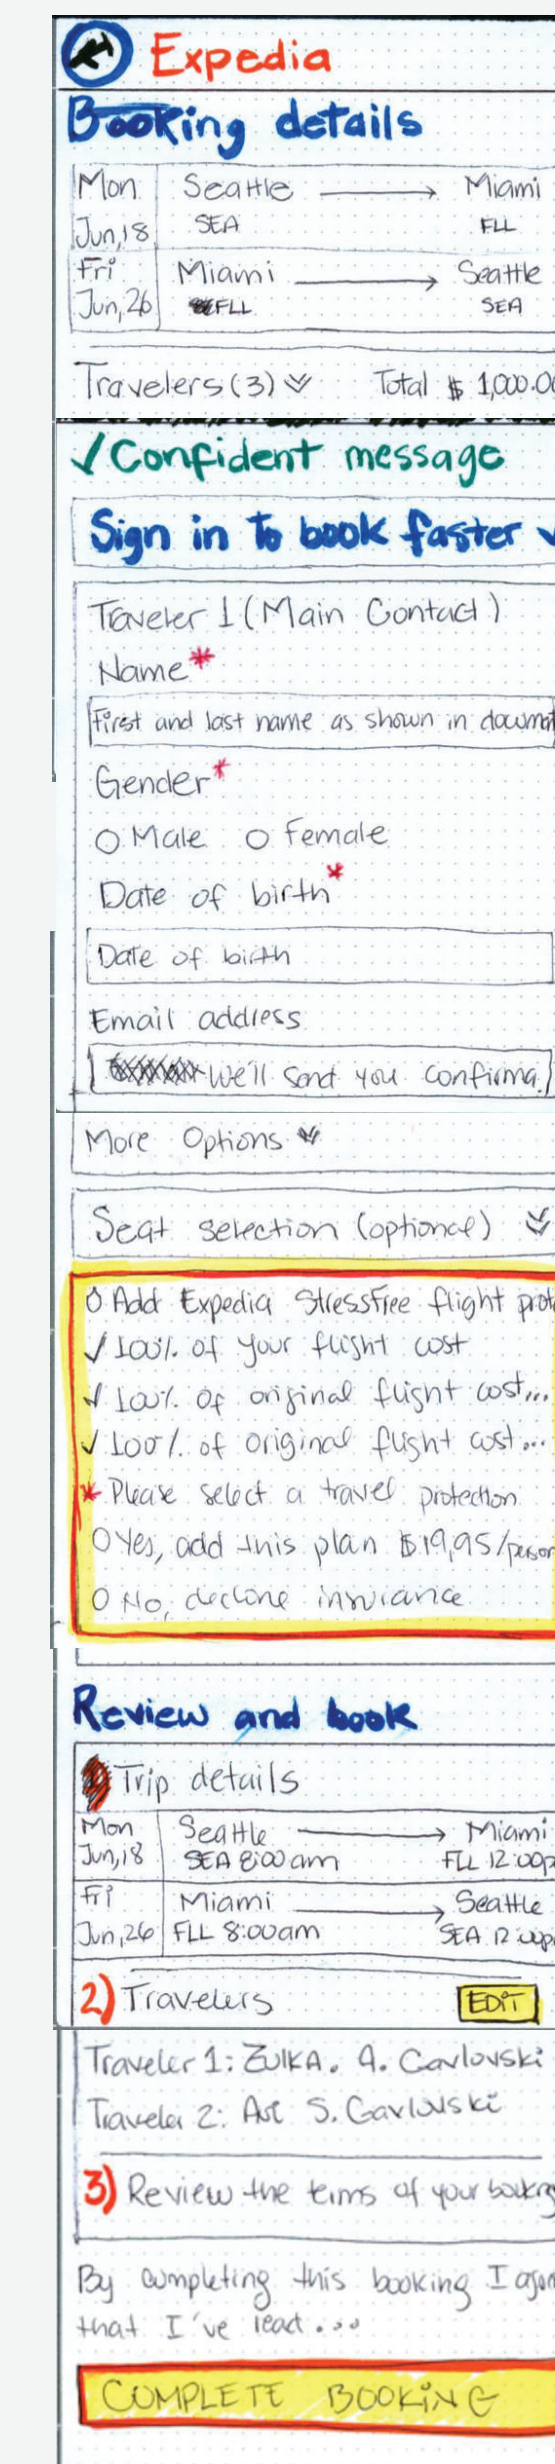 Expedia
Booking details
Mon Seattle → Miami
Jun,18 SEA FLL
Fri Miami → Seattle
Jun,26 FLL SEA
Travelers (3) Total $ 1,000.00
✓ Confident message
Sign in to book faster
Traveler 1 (Main Contact)
Name*
First and last name as shown in
Gender*
O Male O Female
Date of birth*
Date of birth
Email address
We'll send you confirma
More Options
Seat selection (optional)
O Add Expedia StressFree flight prot
✓ 100% of your flight cost
✓ 100% of original flight cost...
✓ 100% of original flight cost...
* Please select a travel protection
O Yes, add this plan $19,95/person
O No, decline insurance
Review and book
Trip details
Mon Seattle → Miami
Jun,18 SEA 8:00am FLL 12:00p
Fri Miami → Seattle
Jun,26 FLL 8:00am SEA 12:00p
2) Travelers EDIT
Traveler 1: A. Gavlovski
Traveler 2: S. Gavlovski
3) Review the terms of your booking
By completing this booking I
that I've read...
COMPLETE BOOKING